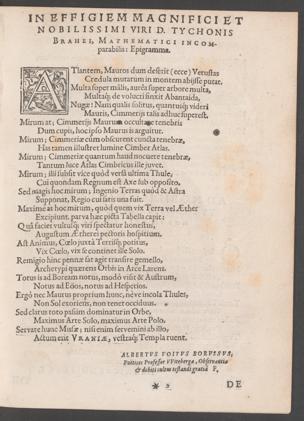 IN EFFIGIEM MAGNIFICI ET
NOBILISSIMI VIRI D. TYCHONIS
BRAHEI, MATHEMATICI INCOM-
parabilis: Epigramma.
Atlantem, Mauros dum deserit (ecce) Vetustas
Credula mutatum in montem abijsse putat.
Multa super mālis, aureā super arbore multa,
de volucri finxit Abantiada,
Nugæ: Nam qualis solitus, quantusq; videri
Mauris, Cimmerijs talis adhuc superest.
Mirum at; Cimmerijs Maurum occultare tenebris
Dum cupis, hoc ipso Maurus is arguitur.
Mirum; Cimmeriæ cum obscurent cuncta tenebræ,
Has tamen illustret lumine Cimber Atlas.
Mirum; Cimmeriæ quantum haud nocuere tenebræ,
Tantum luce Atlas Cimbricus ille juvet.
Mirum; illi subsit vice quod versâ ultima Thule,
Cui quondam Regnum est Axe sub opposito.
Sed magis hoc mirum; Ingenio Terras quod & Astra
Supponat, Regio cui satis una fuit.
Maximè at hoc mirum, quòd quem vix Terra vel Æther
Excipiunt, parva hæc picta Tabella capit:
Quâ faciei vultusq; viri spectatur honestus,
Augustum Ætherei pectoris hospitium.
Ast Animus, Cœlo juxtà Terrisq; potitus,
Vix Cœlo, vix se continet ille Solo.
Remigio hinc pennæ sat agit transire gemello,
Archetypi quærens Orbis in Arce Larem.
Totus is ad Boream notus, modò visit & Austrum,
Notus ad Eoos, notus ad Hesperios.
Ergò nec Maurus proprium hunc, nève incola Thules,
Non Sol exoriens, non tenet occiduus.
Sed clarus toto passim dominatur in Orbe,
Maximus Arte Solo, maximus Arte Polo.
Servate hunc Musæ; nisi enim servemini ab illo,
Actum erit URANIÆ, vestraq; Templa ruent.
ALBERTUS VOITUS BORUSSUS,
Poëtices Professor VViteberga, Observantiæ
& debiti cultus testandi gratiâ F.
* 2 DE